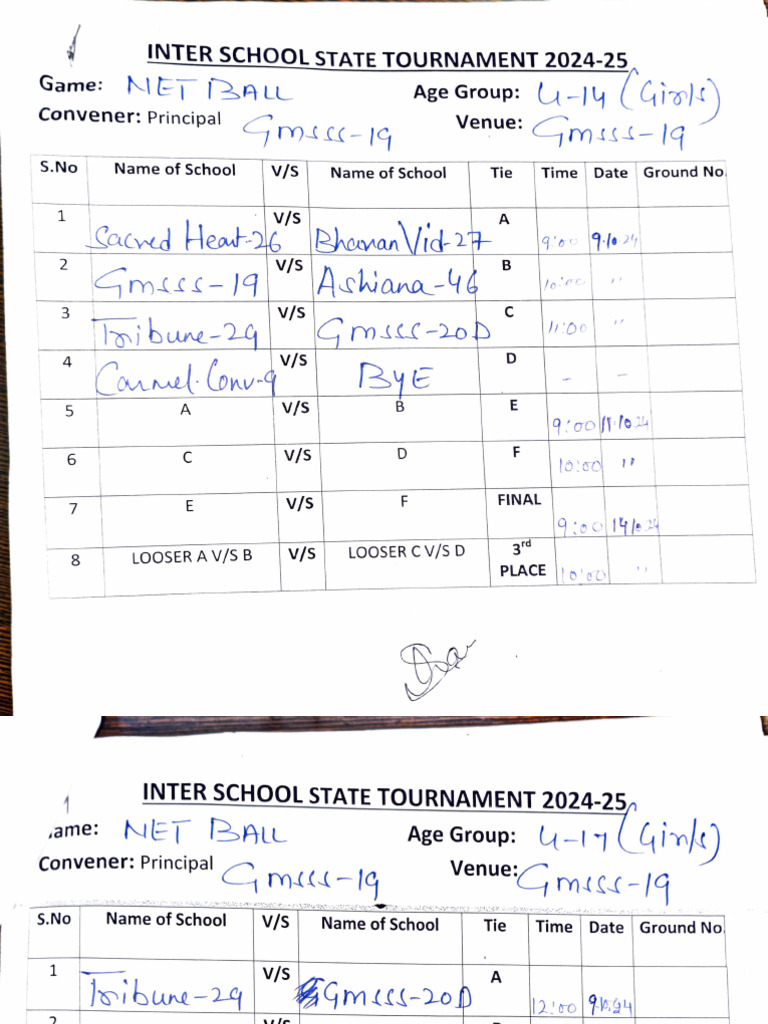 INTER SCHOOL STATE TOURNAMENT 2024-25
Game: NET BALL Age Group: U-14 (Girls)
Convener: Principal Gmsss-19 Venue: Gmsss-19
S.No Name of School V/S Name of School Tie Time Date Ground No.
1 Sacred Heart-26 V/S Bhavan Vid-27 A 9:00 9.10.24
2 Gmsss-19 V/S Ashiana-46 B 10:00 "
3 Tribune-29 V/S Gmsss-20D C 11:00 "
4 Carmel.Conv-9 V/S BYE D - -
5 A V/S B E 9:00 11.10.24
6 C V/S D F 10:00 "
7 E V/S F FINAL 9:00 14/10.24
8 LOOSER A V/S B V/S LOOSER C V/S D 3rd PLACE 10:00 "
INTER SCHOOL STATE TOURNAMENT 2024-25
ame: NET BALL Age Group: U-17 (Girls)
Convener: Principal Gmsss-19 Venue: Gmsss-19
S.No Name of School V/S Name of School Tie Time Date Ground No.
1 Tribune-29 V/S Gmsss-20D A 12:00 9.10.24